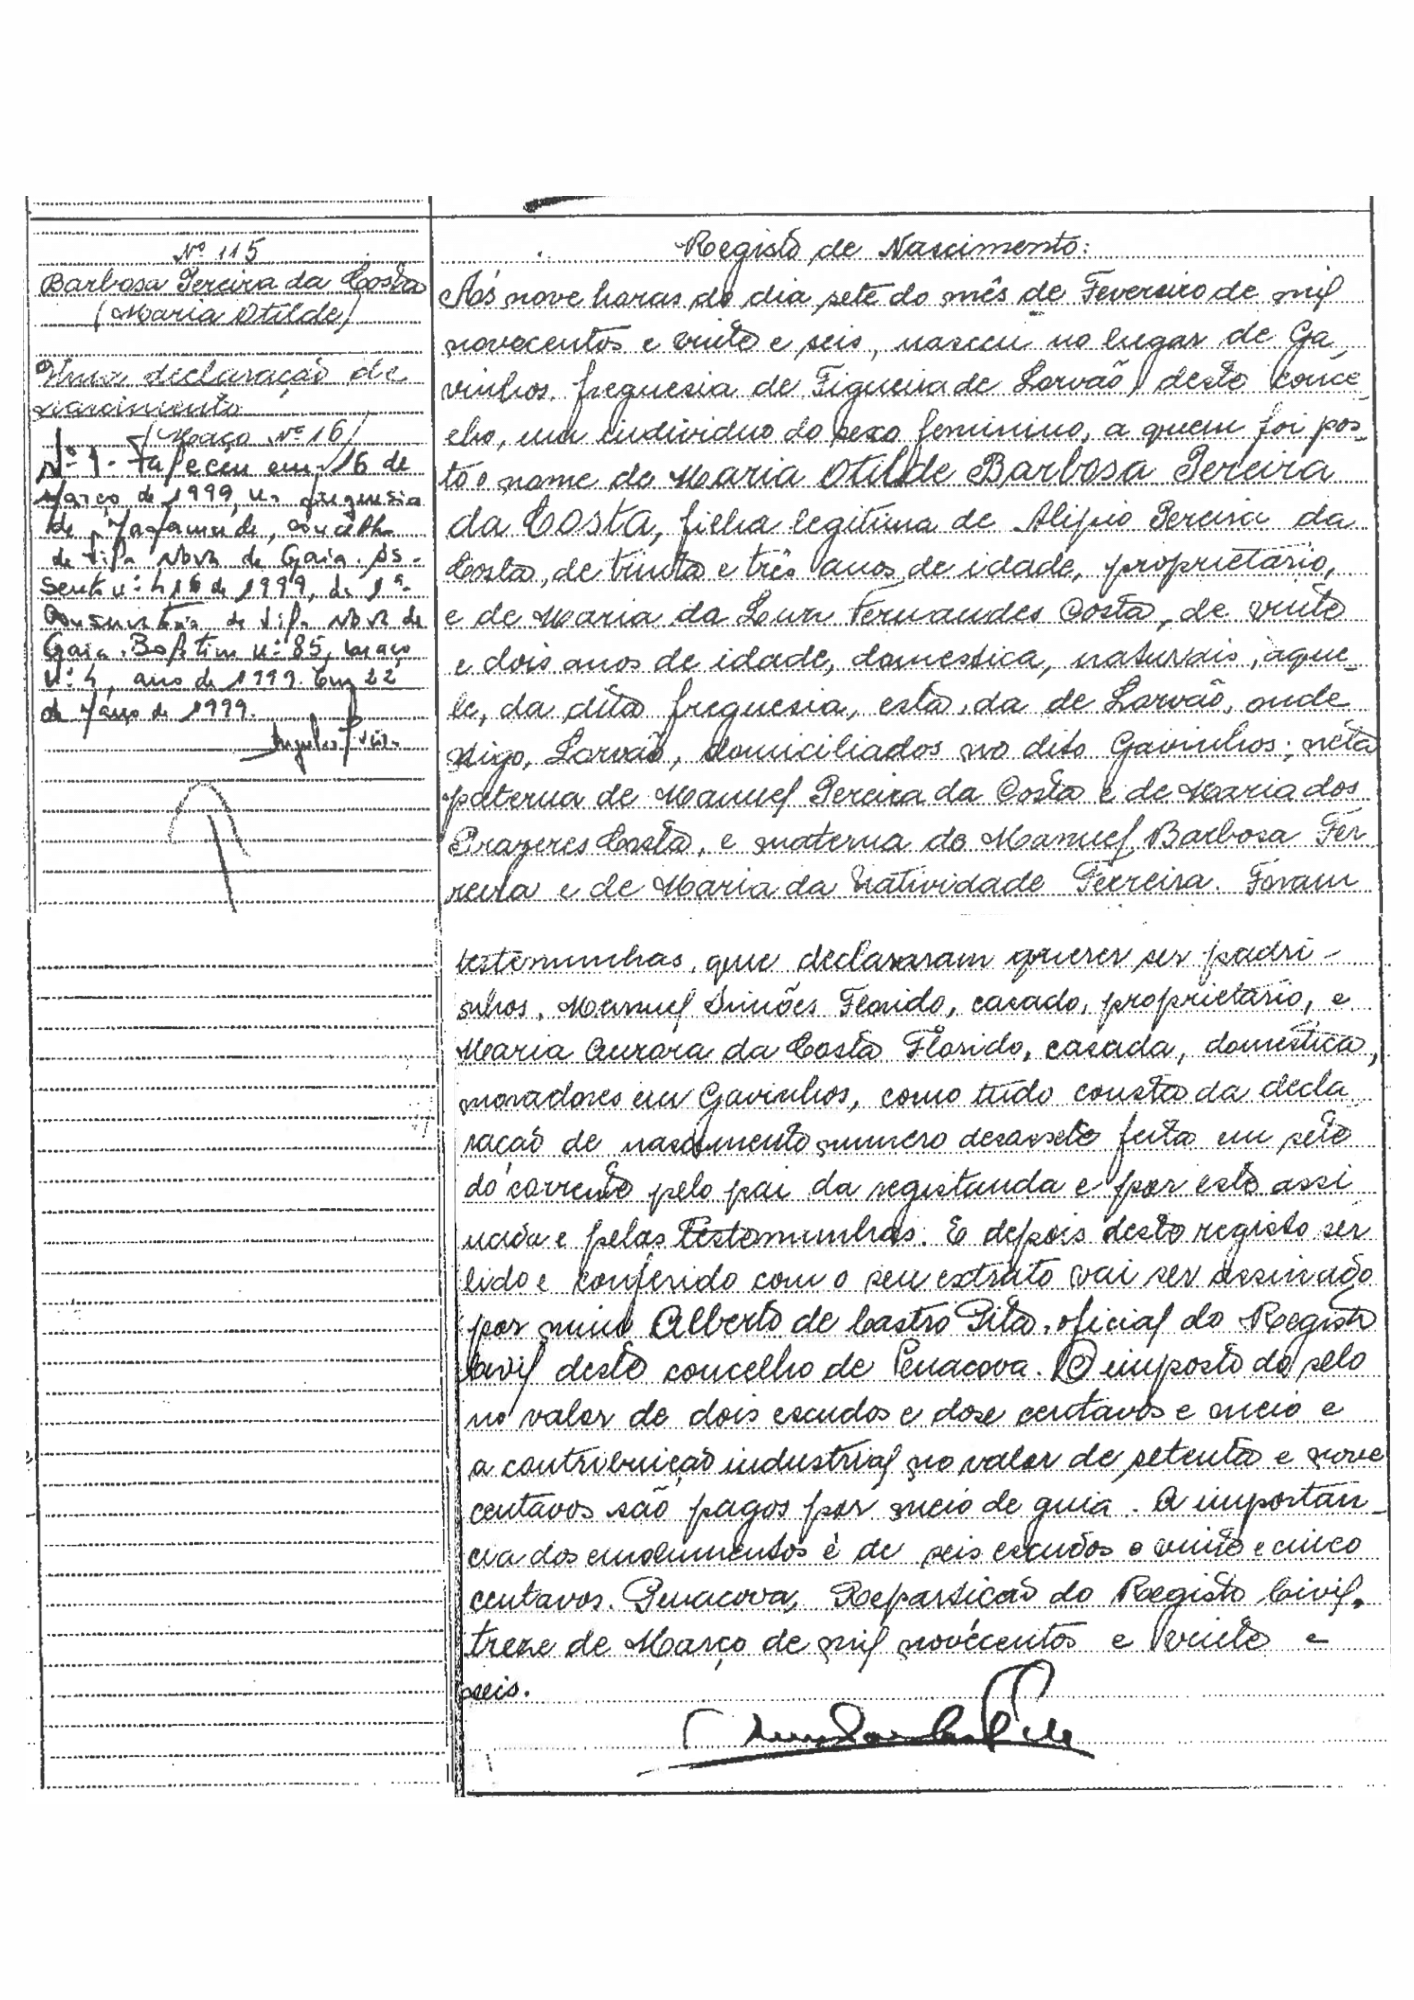 Nº 115
Barbosa Pereira da Costa
(Maria Otilde)
Uma declaração de
nascimento
(Maço Nº 16)
Nº 1. Faleceu em 16 de
Março de 1999, na freguesia
de Mafamude, concelho
de Vila Nova de Gaia. As-
sento nº 416 de 1999, da 1ª
Conservatória de Vila Nova de
Gaia. Boletim nº 85, maço
nº 4, ano de 1999. Em 22
de Março de 1999.
Registo de Nascimento:
Ás nove horas do dia sete do mês de Fevereiro de mil
novecentos e vinte e seis, nasceu no lugar de Ga
vinhos, freguesia de Figueira de Lorvão, deste conce
lho, um individuo do sexo feminino, a quem foi pos-
to o nome de Maria Otilde Barbosa Pereira
da Costa, filha legitima de Alipio Pereira da
Costa, de trinta e três anos de idade, proprietário,
e de Maria da Luz Fernandes Costa, de vinte
e dois anos de idade, domestica, naturais, aque-
le, da dita freguesia, esta, da de Lorvão, onde
digo, Lorvão, domiciliados no dito Gavinhos; neta
paterna de Manuel Pereira da Costa e de Maria dos
Prazeres Costa, e materna de Manuel Barbosa Fer
reira e de Maria da Natividade Ferreira. Foram
testemunhas, que declararam querer ser padri-
nhos, Manuel Simões Florido, casado, proprietário, e
Maria Aurora da Costa Florido, casada, domestica,
moradores em Gavinhos, como tudo consta da decla
ração de nascimento numero desassete feita em sete
do corrente pelo pai da registanda e por este assi
nada e pelas testemunhas. E depois deste registo ser
lido e conferido com o seu extrato vai ser assinado
por mim Alberto de Castro Pita, oficial do Registo
Civil deste concelho de Penacova. O imposto do selo
no valor de dois escudos e dose centavos e meio e
a contribuição industrial no valor de setenta e nove
centavos são pagos por meio de guia. A importan-
cia dos emolumentos é de seis escudos e vinte e cinco
centavos. Penacova, Repartição do Registo Civil,
treze de Março de mil novecentos e vinte e
seis.